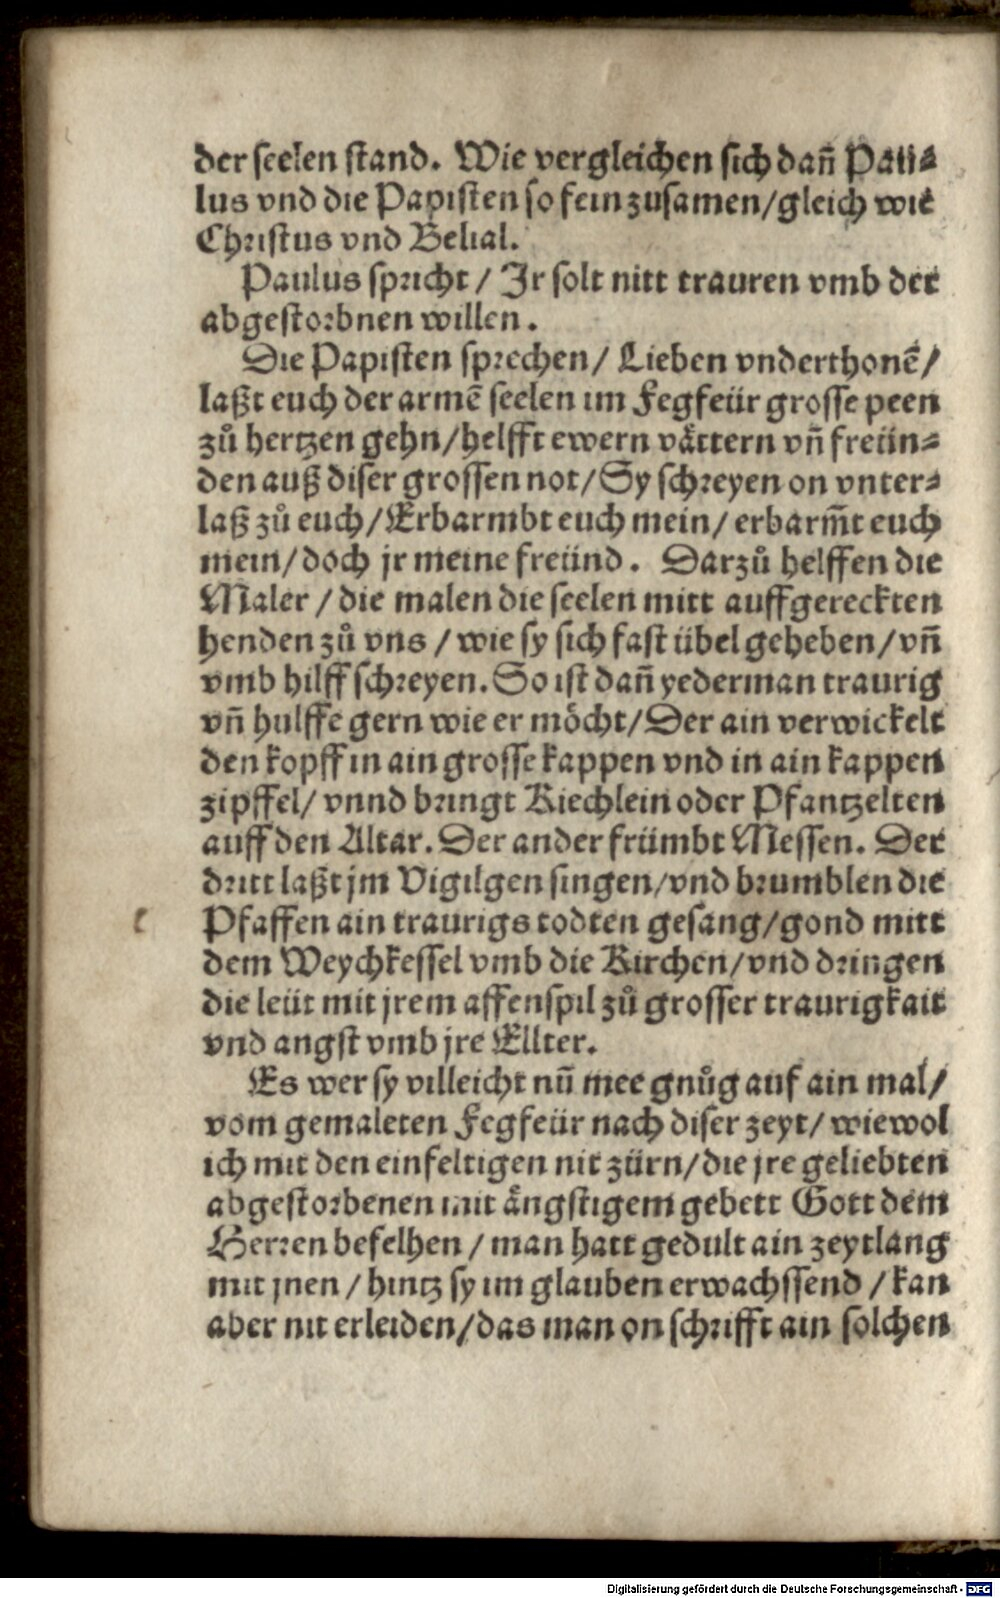 der seelen stand. Wie vergleichen sich dañ Pau⸗
lus vnd die Papisten so fein zusamen/gleich wie
Christus vnd Belial.
Paulus spricht / Jr solt nitt trauren vmb der
abgestorbnen willen.
Die Papisten sprechen/ Lieben vnderthonẽ/
laßt euch der armẽ seelen im Fegfeür grosse peen
zů hertzen gehn/helfft ewern våttern vñ freün⸗
den auß diser grossen not/Sy schreyen on vnter⸗
laß zů euch/Erbarmbt euch mein/ erbarm̃t euch
mein/doch jr meine freünd. Darzů helffen die
Maler / die malen die seelen mitt auffgereckten
henden zů vns / wie sy sich fast übel geheben/vñ
vmb hilff schreyen. So ist dañ yederman traurig
vñ hulffe gern wie er möcht/Der ain verwickelt
den kopff in ain grosse kappen vnd in ain kappen
zipffel/ vnnd bringt Kiechlein oder Pfantzelten
auff den Altar. Der ander frümbt Messen. Der
dritt laßt jm Vigilgen singen/vnd brumblen die
Pfaffen ain traurigs todten gesang/gond mitt
dem Weychkessel vmb die Kirchen/vnd dringen
die leüt mit jrem affenspil zů grosser traurigkait
vnd angst vmb jre Ellter.
Es wer sy villeicht nũ mee gnůg auf ain mal/
vom gemaleten Fegfeür nach diser zeyt/ wiewol
ich mit den einfeltigen nit zürn/die jre geliebten
abgestorbenen mit ångstigem gebett Gott dem
Herren befelhen / man hatt gedult ain zeytlang
mit jnen / hintz sy im glauben erwachssend / kan
aber nit erleiden/das man on schrifft ain solchen
Digitalisierung gefördert durch die Deutsche Forschungsgemeinschaft - DFG